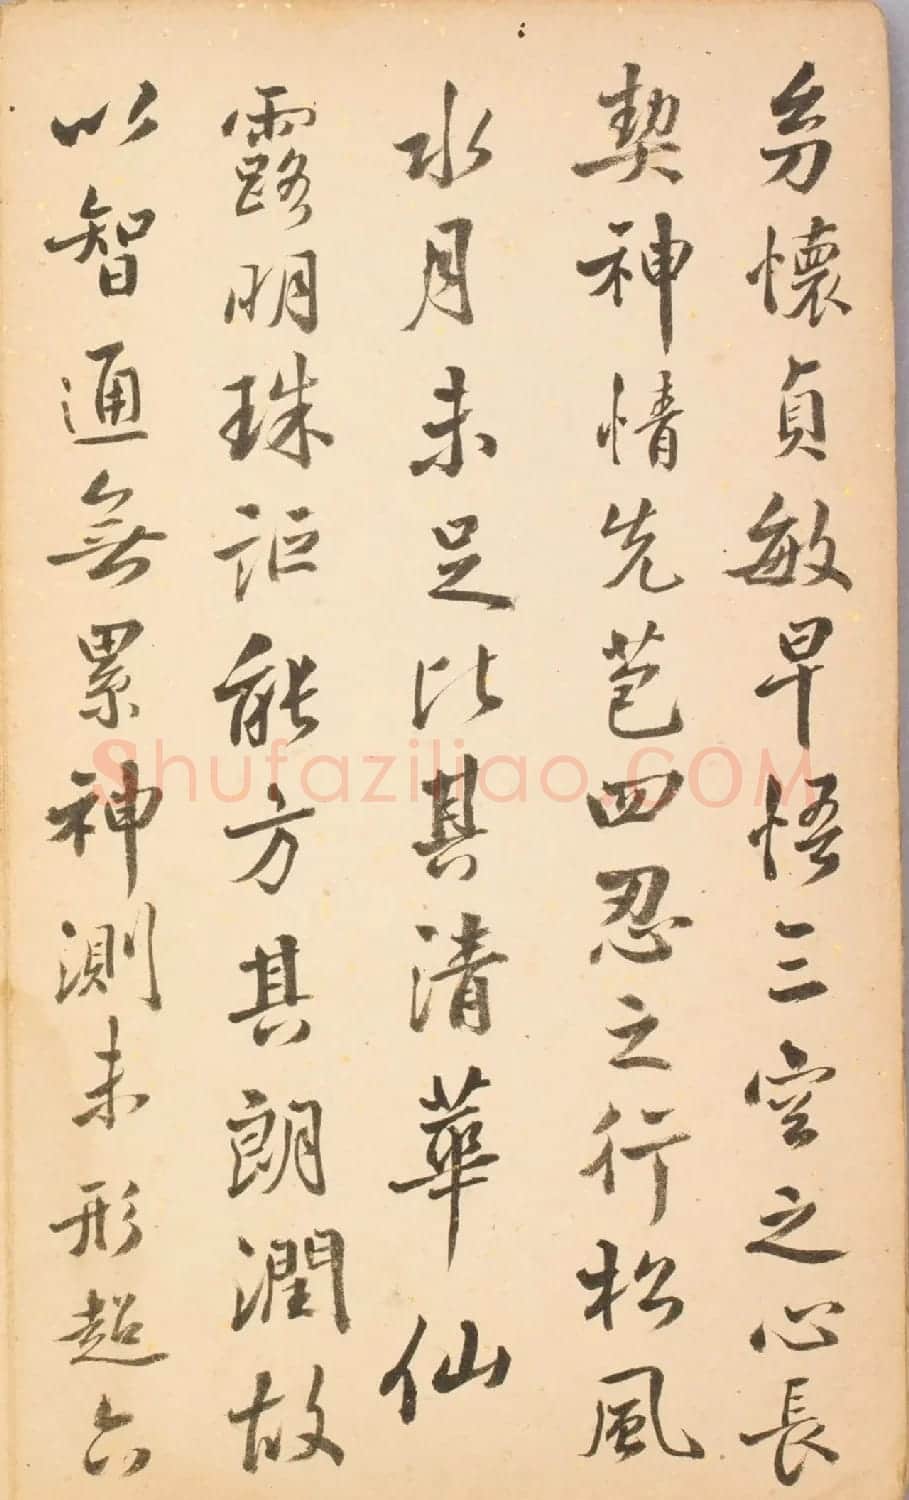 幼懷貞敏早悟三空之心長
契神情先苞四忍之行松風
水月未足比其清華仙
露明珠詎能方其朗潤故
以智通無累神測未形超六
Shufaziliao.COM